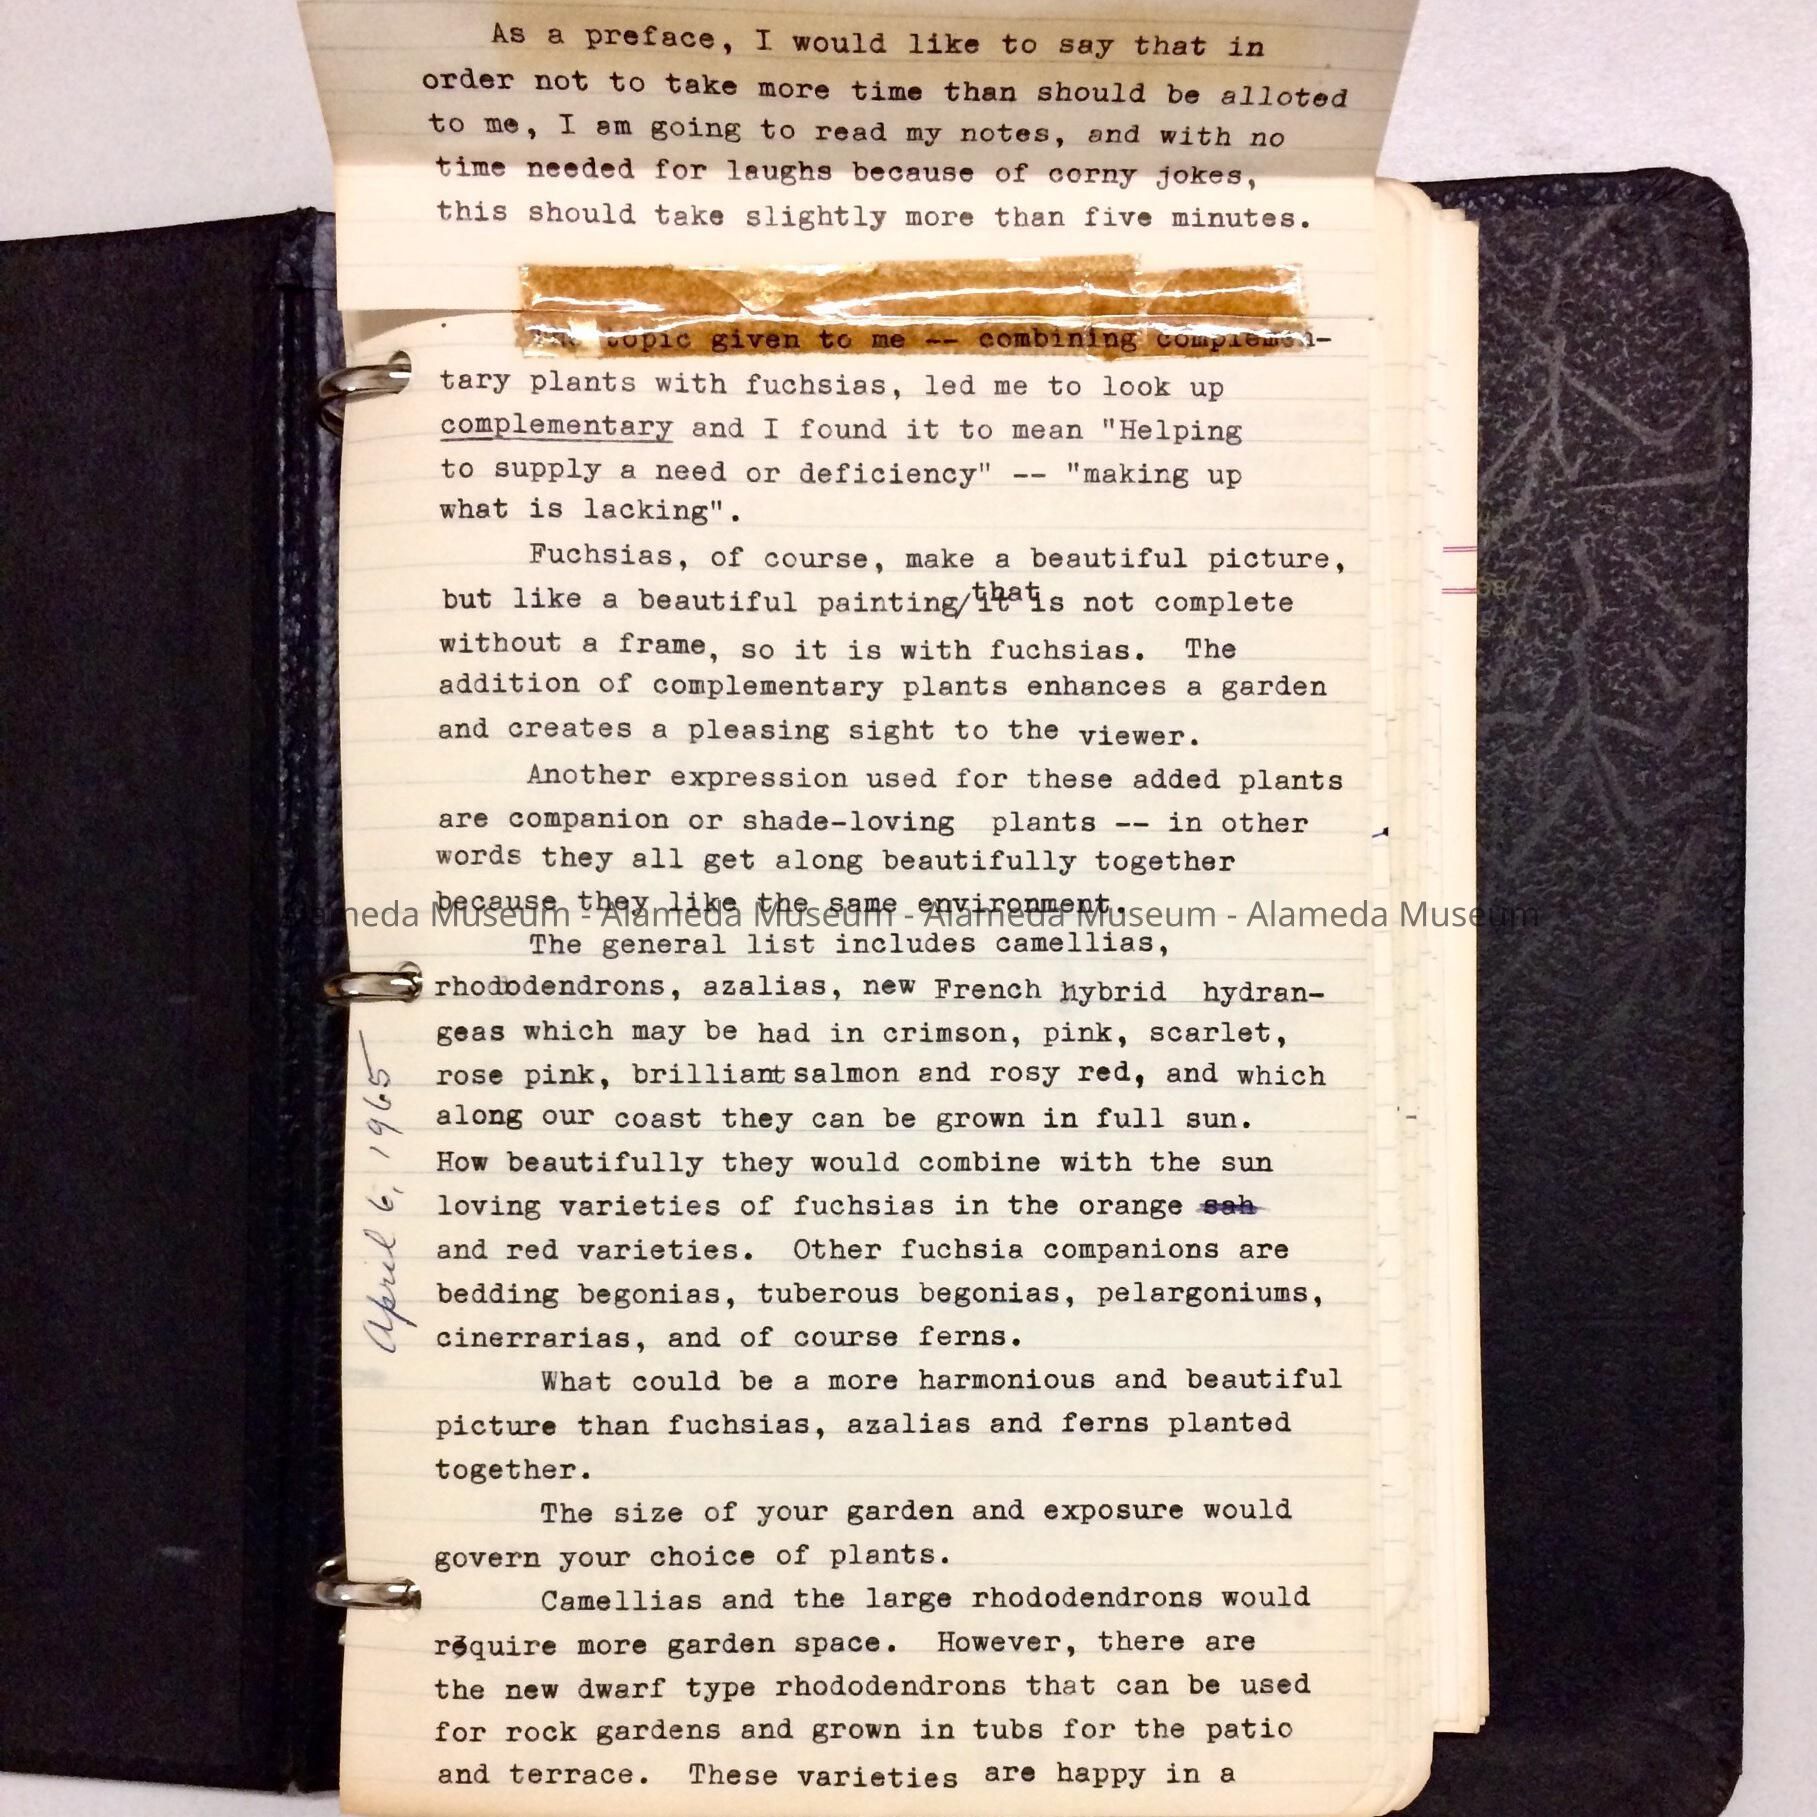 As a preface, I would like to say that in
order not to take more time than should be alloted
to me, I am going to read my notes, and with no
time needed for laughs because of corny jokes,
this should take slightly more than five minutes.
The topic given to me -- combining complemen-
tary plants with fuchsias, led me to look up
complementary and I found it to mean "Helping
to supply a need or deficiency" -- "making up
what is lacking".
Fuchsias, of course, make a beautiful picture,
but like a beautiful painting/that it is not complete
without a frame, so it is with fuchsias. The
addition of complementary plants enhances a garden
and creates a pleasing sight to the viewer.
Another expression used for these added plants
are companion or shade-loving plants -- in other
words they all get along beautifully together
because they like the same environment.
Alameda Museum - Alameda Museum - Alameda Museum - Alameda Museum
The general list includes camellias,
rhododendrons, azalias, new French hybrid hydran-
geas which may be had in crimson, pink, scarlet,
rose pink, brilliant salmon and rosy red, and which
along our coast they can be grown in full sun.
How beautifully they would combine with the sun
loving varieties of fuchsias in the orange sah
and red varieties. Other fuchsia companions are
bedding begonias, tuberous begonias, pelargoniums,
cinerrarias, and of course ferns.
What could be a more harmonious and beautiful
picture than fuchsias, azalias and ferns planted
together.
The size of your garden and exposure would
govern your choice of plants.
Camellias and the large rhododendrons would
require more garden space. However, there are
the new dwarf type rhododendrons that can be used
for rock gardens and grown in tubs for the patio
and terrace. These varieties are happy in a
April 6, 1965